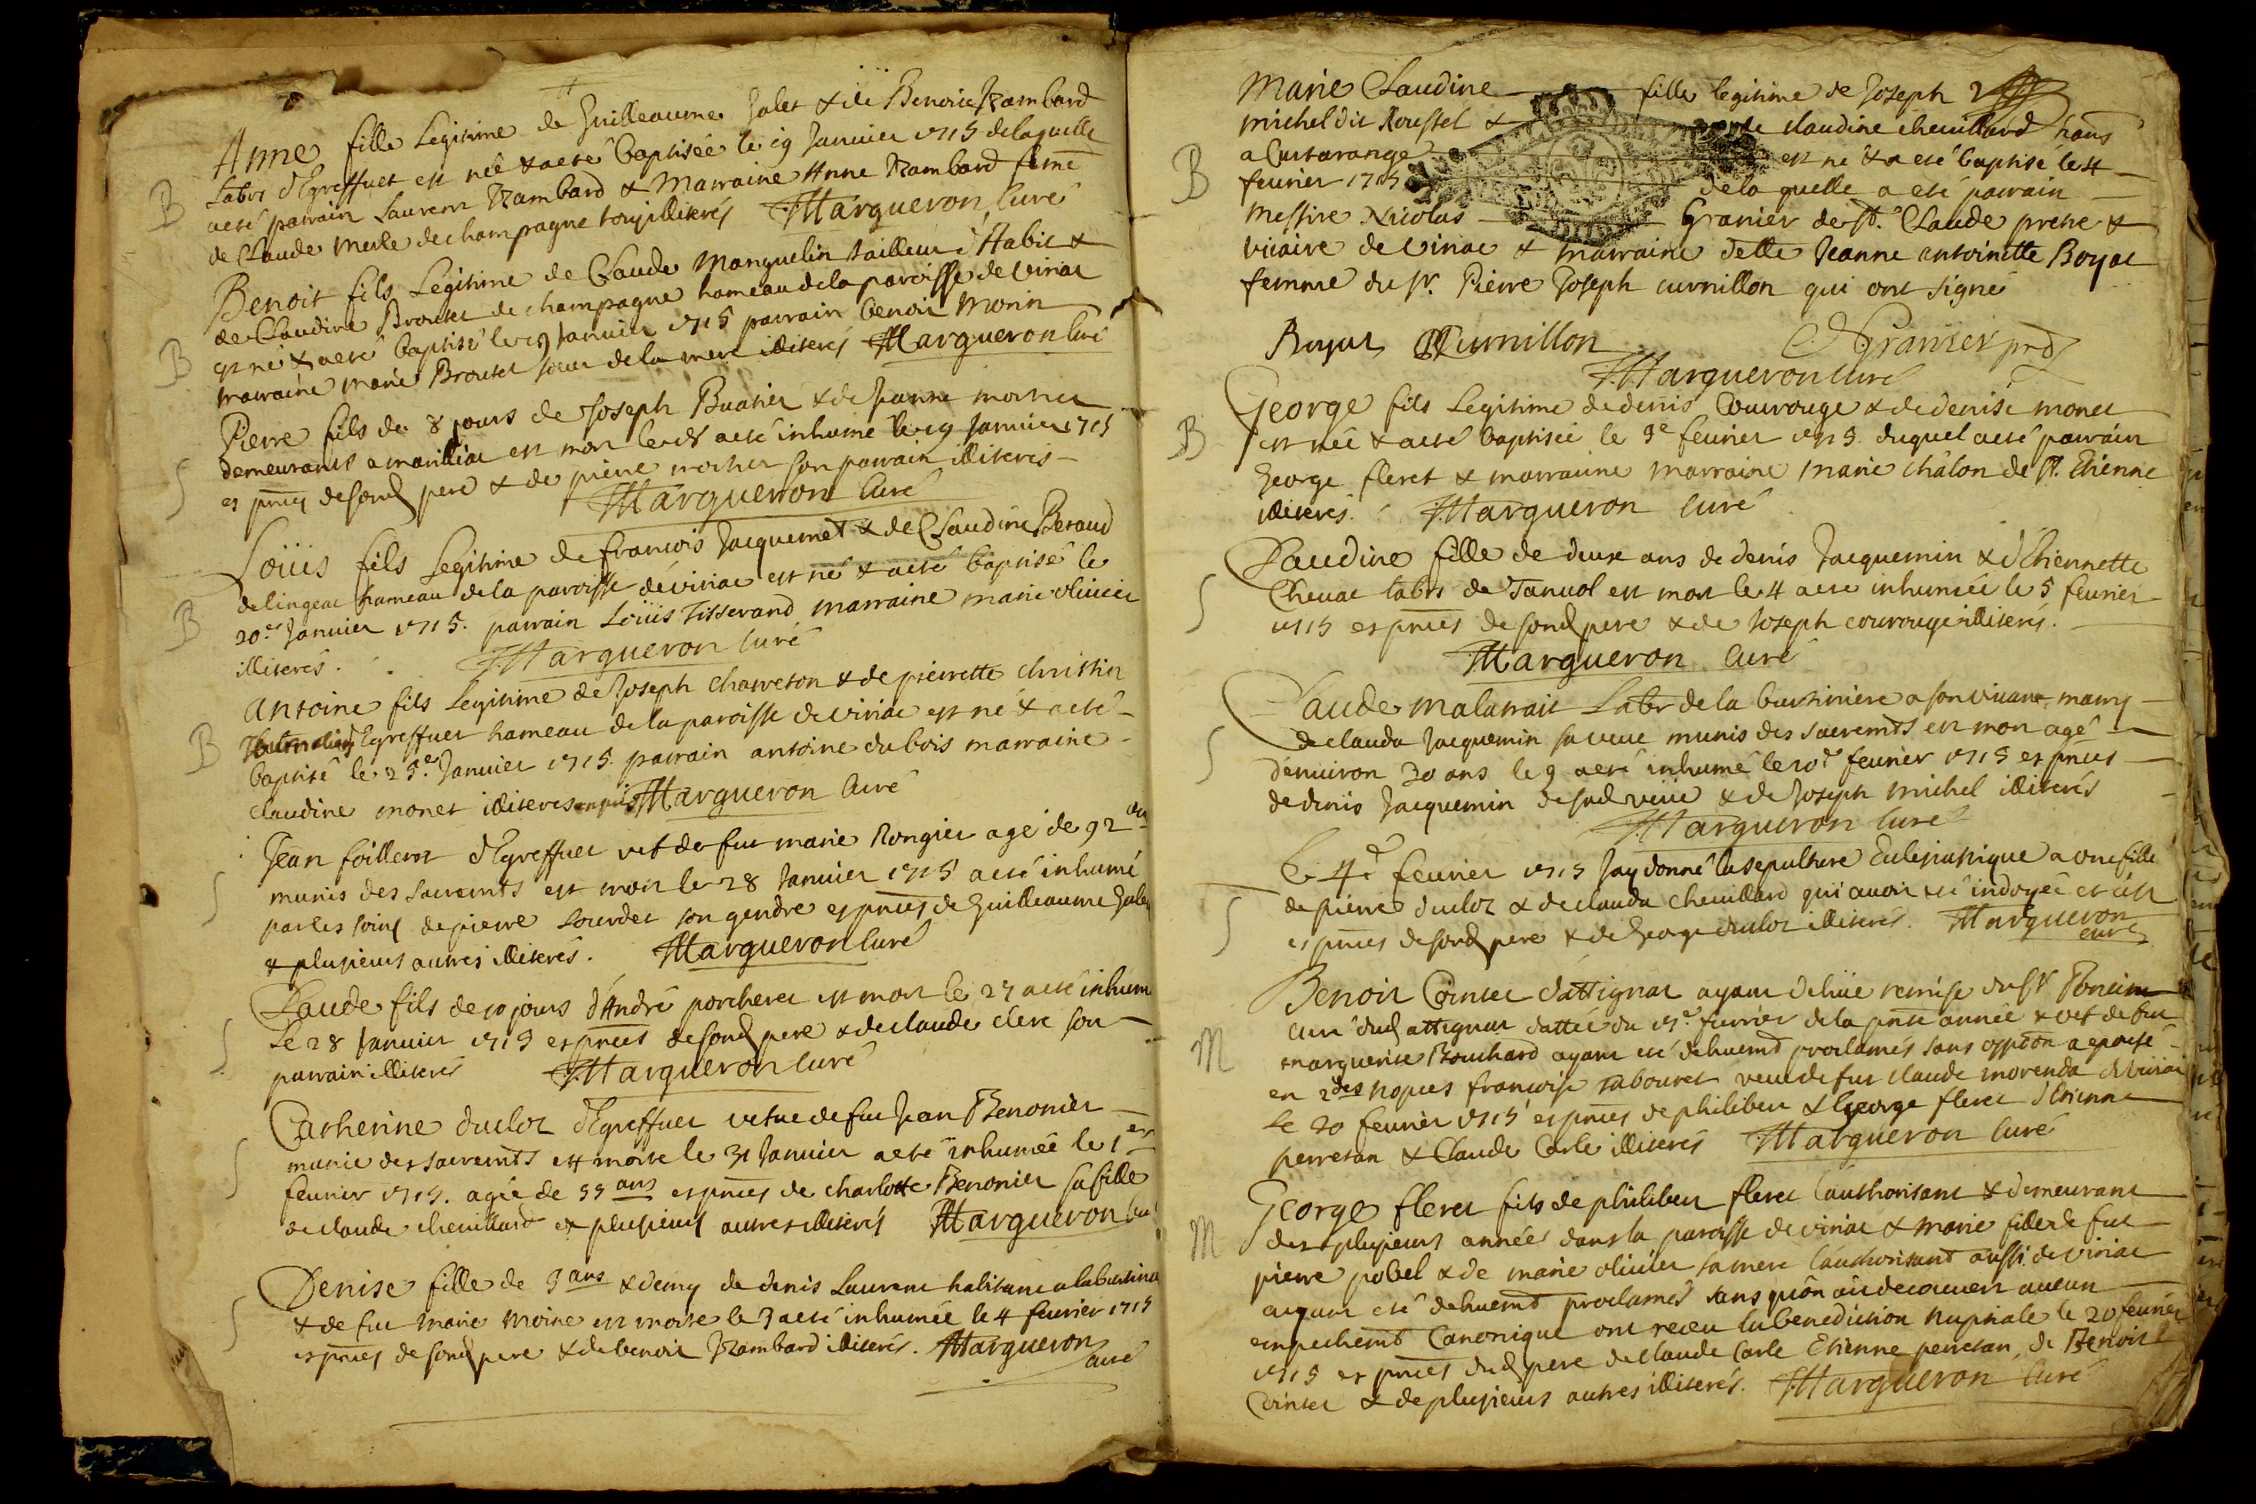 B
Anne fille Legitime de Guilleaume Jalet & de Benoite Rambard
Labrs d'Egreffuet est née & a eté baptisée le 19 Janvier 1715 de laquelle
a eté parrain Laurent Rambard & Marraine Anne Rambard feme
de Claude Merle de champagne tous illiterés JMargueron Curé
B
Benoit fils Legitime de Claude Manguelin tailleur d'Habit &
de Claudine Broutet de champagne hameau de la paroisse de viriat
est né & a eté baptisé le 19 Janvier 1715 parrain benoit Morin
marraine marie Broutet soeur de la mere illiterés JMargueron Curé
S
Pierre fils de 8 jours de Joseph Buatier & de Janne
demeurants a marillat est mort le a eté inhumé le 19 Janvier 1715
es pnces de sond pere & de pierre son parrain illiteres
JMargueron Curé
B
Loüis fils Legitime de francois Jacquemet & de Claudine Beraud
de lingeat hameau de la paroisse de viriat est né & a eté baptisé le
20e Janvier 1715. parrain Loüis Tisserand marraine marie olivier
illiterés. JMargueron Curé
B
Antoine fils Legitime de Joseph charreton & de pierrette christin
d'Egreffuet hameau de la paroisse de viriat est né & a eté
baptisé le 25e Janvier 1715 parrain antoine dubois marraine
claudine monet illiteres JMargueron Curé
S
Jean foilleret d'Egreffuet vef de fut marie Rongier agé de 92 ans
munis des sacremts est mort le 28 Janvier 1715 a eté inhumé
par les soins de pierre Lourdet son gendre es pnces de Guilleaume Jalet
& plusieurs autres illiterés. JMargueron Curé
S
Claude fils de 10 jours d'André porcheret est mort le 27 a eté inhumé
Le 28 Janvier 1715 es pnces de sond pere & de claude clerc son
parrain illiterés JMargueron Curé
S
Catherine duclot d'Egreffuet vefue de fut Jean Benonier
munie des sacremts est morte le 31 Janvier a eté inhumée le 1er
fevrier 1715. agée de 55 ans es pnces de charlotte Benonier sa fille
de claude chevillard & plusieurs autres illiterés JMargueron Curé
S
Denise fille de 3 ans & demy de denis Laurent habitant a la bertiniere
& de fut marie moine est morte le 3 a eté inhumée le 4 fevrier 1715
es pnces de sond pere & de benoit Rambard illiterés. JMargueron
Curé
B
Marie Claudine fille legitime de Joseph
michel dit Roussel & de claudine chevillard
a Curtarangé est né & a eté baptisé le 4
fevrier 1715 de la quelle a eté parrain
Messire Nicolas Granier de St. Claude pretre &
vicaire de viriat & marraine delle Jeanne antoinette Boyat
femme du sr. Pierre Joseph curnillon qui ont signé
Boyat Curnillon Granier
JMargueron Curé
B
George fils Legitime de denis Courrouge & de denise monet
est née & a eté baptisée le 5e fevrier 1715. duquel a eté parrain
George fleret & marraine marraine marie châlon de St. Etienne
illiterés. JMargueron Curé
S
Claudine fille de deux ans de denis Jacquemin & d'Etiennette
Chevat labrs de Tanvol est mort le 4 a eté inhumée le 5 fevrier
1715 es pnces de sond pere & de Joseph courrouge illiterés.
JMargueron Curé
S
Claude malatrait Labr de la bertiniere a son vivant mary
de clauda Jacquemin sa veue munis des sacremts est mort agé
d'environ 30 ans le 9 a eté inhumé le 10e fevrier 1715 es pnces
de denis Jacquemin de sad veue & de Joseph michel illiterés
JMargueron Curé
S
Le 4e fevrier 1715 Jay donné la sepulture Eclesiastique a une fille
de pierre duclot & de clauda chevillard qui avoit eté indoyée
es pnces de sond pere & de George duclot illiterés. JMargueron
curé
M
Benoit Cointet d'attignat ayant deliüe remise du sr Poncin
curé dud attignat dattée du 15e fevrier de la pnte année & vef de fut
marguerite Bouchard ayant eté dehuemt proclamés sans oppoôn a epousé
en 2des nopces francoise Tabouret veuve de fut claude morenda de viriat
Le 20 fevrier 1715 es pnces de philibert & George fleret d'Etienne
perretan & Claude Carle illiterés JMargueron Curé
M
George fleret fils de philibert fleret l'authorisant & demeurant
des plusieurs année dans la paroisse de viriat & marie fille de fut
pierre pobel & de marie olivier sa mere l'authorisant aussi de viriat
ayant eté dehuemt proclamés sans qu'ôn ait decouvert aucun
empechemt Canonique ont receu la benediction nuptiale le 20 fevrier
1715 es pnces dud pere de claude Carle Etienne perretan, de Benoit
Cointet & de plusieurs autres illiterés. JMargueron Curé